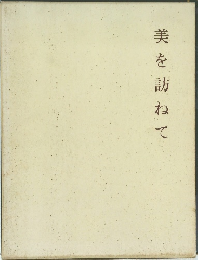 美を訪ねて